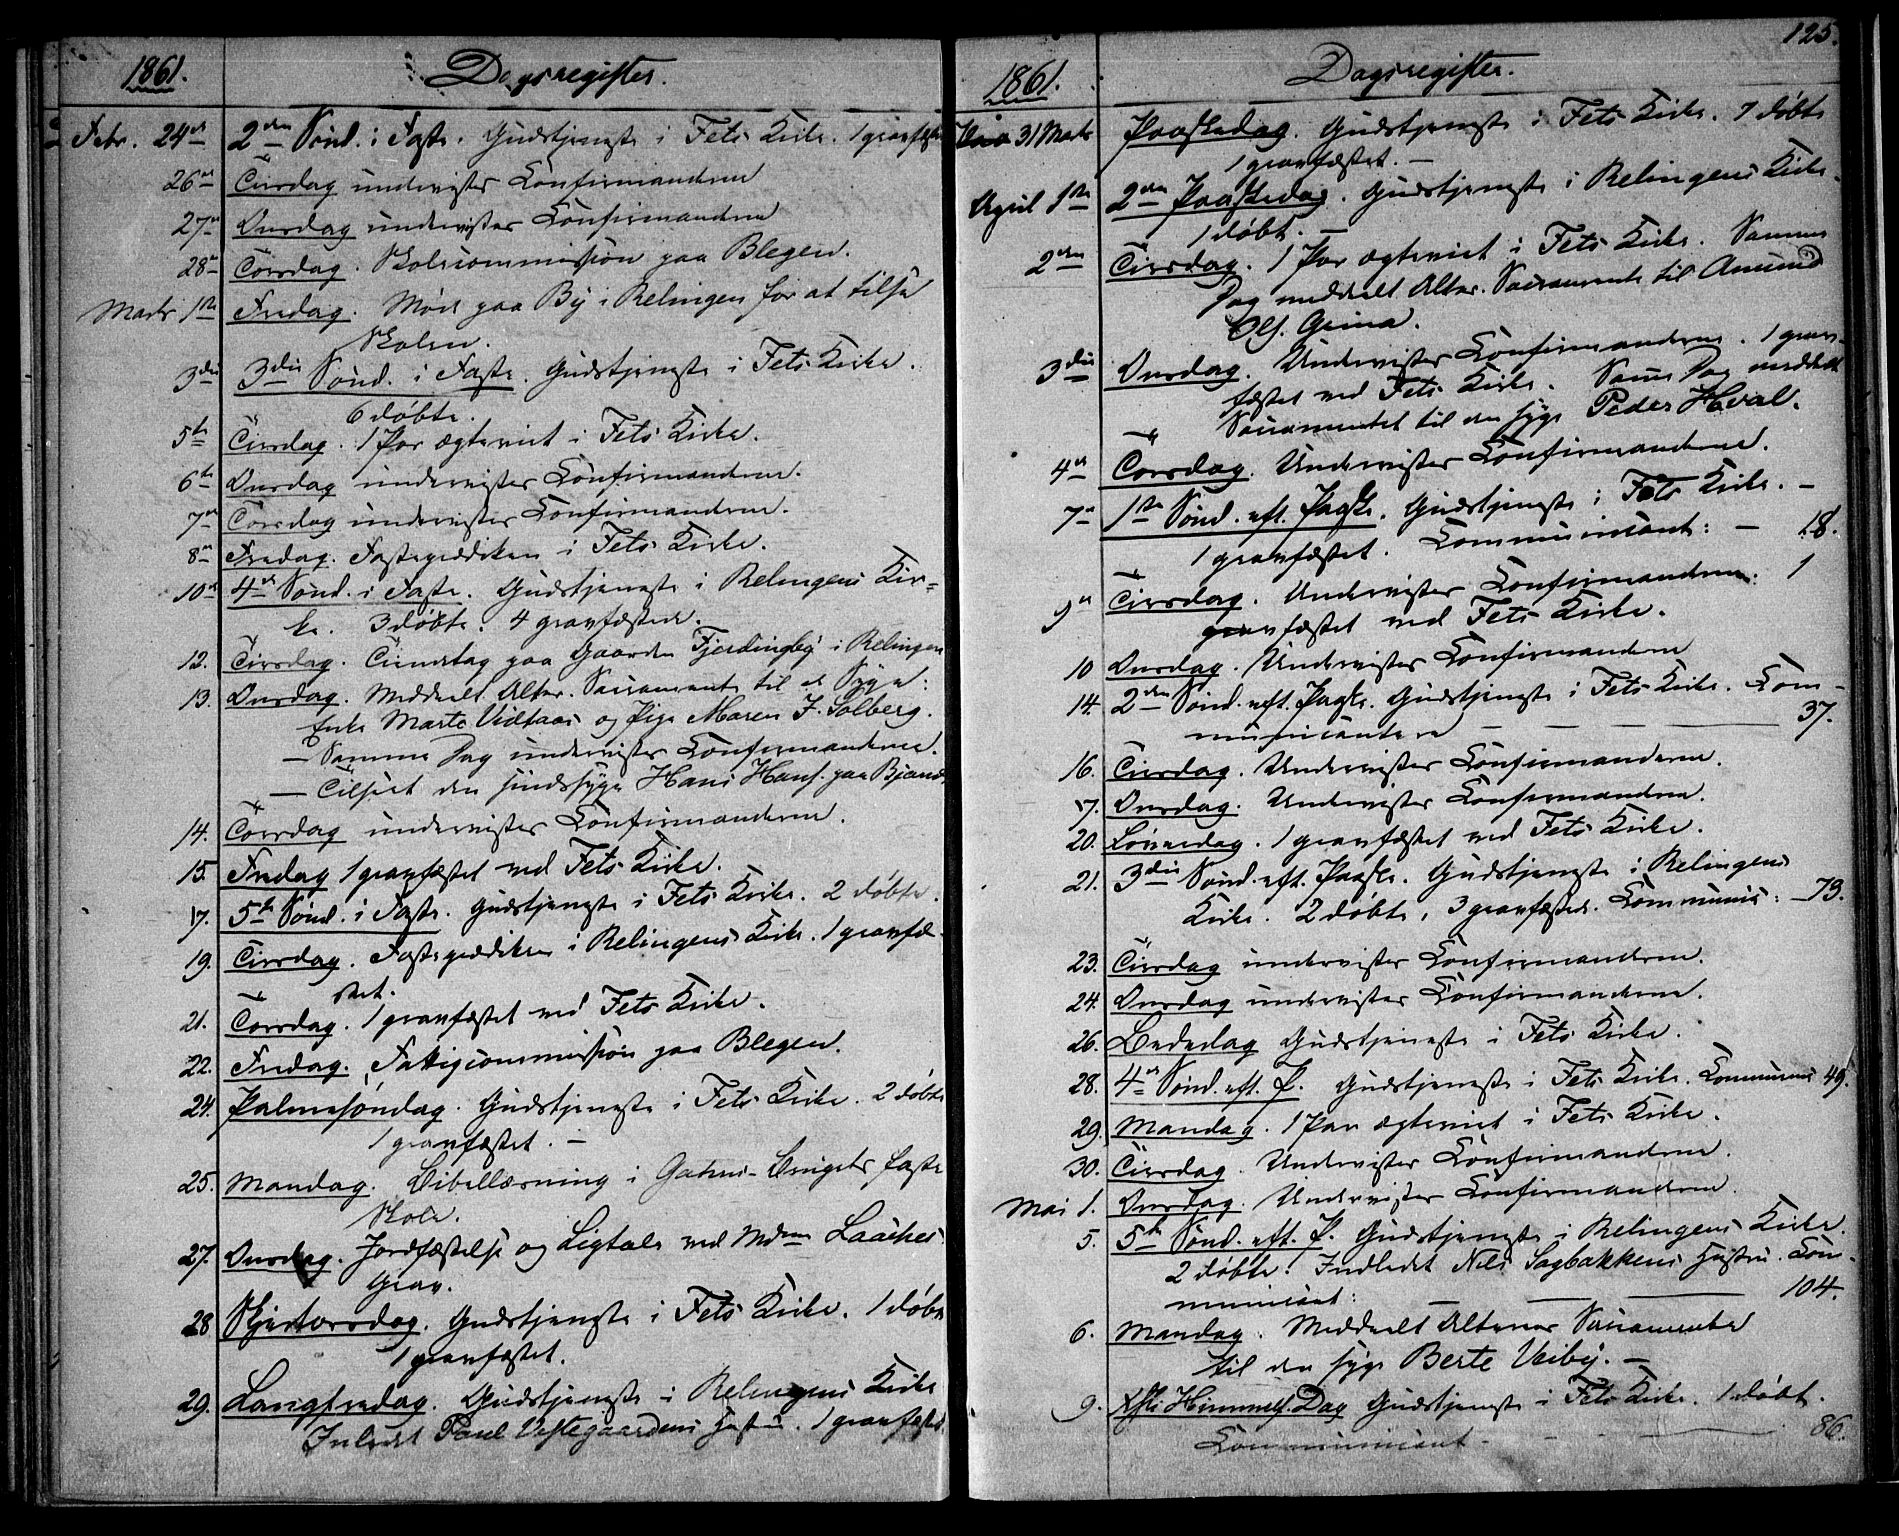 1861. Dagsregister.
Febr. 24de 2den Sønd. i Faste. Gudstjeneste i Fets Kirke. 1 gravfæstet
26de Tirsdag underviste Confirmanderne
27de Onsdag underviste Confirmanderne
28de Torsdag. Skolecommission paa Blegen.
Marts 1ste Fredag. Møde paa By i Relingen for at tilse
Skolen.
3die 3die Sønd. i Faste. Gudstjeneste i Fets Kirke.
6 døbte.
5te Tirsdag. 1 Par ægteviet i Fets Kirke.
6te Onsdag undervistes Confirmanderne.
7de Torsdag underviste Confirmanderne.
8de Fredag. Fasteprædiken i Fets Kirke.
10de 4de Sønd. i Faste. Gudstjeneste i Relingens Kir-
ke. 3 døbte. 4 gravfæstede.
12. Tirsdag. Tiendetag paa Gaarden Fjerdingby i Relingen
13. Onsdag. Meddeelt Alter. Sacramente til 2 Syge:
Enke Marte Vidtaas og Pige Maren J. Solberg.
— Samme Dag underviste Confirmanderne.
— Tilseet den sindssyge Hans Hans. paa
14. Torsdag underviste Confirmanderne.
15. Fredag 1 gravfæstet ved Fets Kirke.
17. 5te Sønd. i Faste. Gudstjeneste i Fets Kirke. 2 døbte.
19. Tirsdag. Fasteprædiken i Relingens Kirke. 1 gravfæ-
stet.
21. Torsdag. 1 gravfæstet ved Fets Kirke.
22. Fredag. Fattigcommission paa Blegen.
24. Palmesøndag. Gudstjeneste i Fets Kirke. 2 døbte
1 gravfæstet. —
25. Mandag. Bibellæsning i faste
Skole.
27. Onsdag. Jordfæstelse og Ligtale ved Mdme Laaches
Grav.
28 Skjertorsdag. Gudstjeneste i Fets Kirke. 1 døbt
1 gravfæstet.
29. Langfredag. Gudstjeneste i Relingens Kirke
Inledet Paul Vestegaardens Hustru. 1 gravfæstet.
125.
1861. Dagsregister.
31 Marts Paaskedag. Gudstjeneste i Fets Kirke. 7 døbte
1 gravfæstet. —
April 1ste 2den Paaskedag. Gudstjeneste i Relingens Kirke.
1 døbt. —
2den Tirsdag. 1 Par ægteviet i Fets Kirke. Samme
Dag meddeelt Alter. Sacramente til Amund
Ols. Grina.
3die Onsdag. Underviste Confirmanderne. 1 grav-
fæstet ved Fets Kirke. Samme Dag meddeelt
Sacramentet til den syge Peder Hval.
4de Torsdag. Underviste Confirmanderne.
7de 1ste Sønd. eft. Paaske. Gudstjeneste i Fets Kirke. —
1 gravfæstet. Communicant: — 18.
9de Tirsdag. Underviste Confirmanderne. 1
gravfæstet ved Fets Kirke.
10 Onsdag. Underviste Confirmanderne
14. 2den Sønd. eft. Paaske. Gudstjeneste i Fets Kirke. Com-
municantere — 37.
16. Tirsdag. Underviste Confirmanderne.
17. Onsdag. Underviste Confirmanderne.
20. Løverdag. 1 gravfæstet ved Fets Kirke.
21. 3die Sønd. eft. Paaske. Gudstjeneste i Relingens
Kirke. 2 døbte, 3 gravfæstede. Communic: — 73.
23. Tirsdag underviste Confirmanderne.
24. Onsdag underviste Confirmanderne.
26. Bededag Gudstjeneste i Fets Kirke.
28. 4de Sønd. eft. P. Gudstjeneste i Fets Kirke. Communic 49.
29. Mandag. 1 Par ægteviet i Fets Kirke.
30. Tirsdag. Underviste Confirmanderne.
Mai 1. Onsdag. Underviste Confirmanderne.
5. 5te Sønd. eft. P. Gudstjeneste i Relingens Kirke.
2 døbte. Indledet Nils Sagbakkens Hustru. Com-
municant: — — 104.
6. Mandag. Meddeelt Alterens Sacramente
til den syge Berte Veiby. —
9. Xsti Himmelf. Dag Gudstjeneste i Fets Kirke. 1 døbt.
Communicant - - - 86.